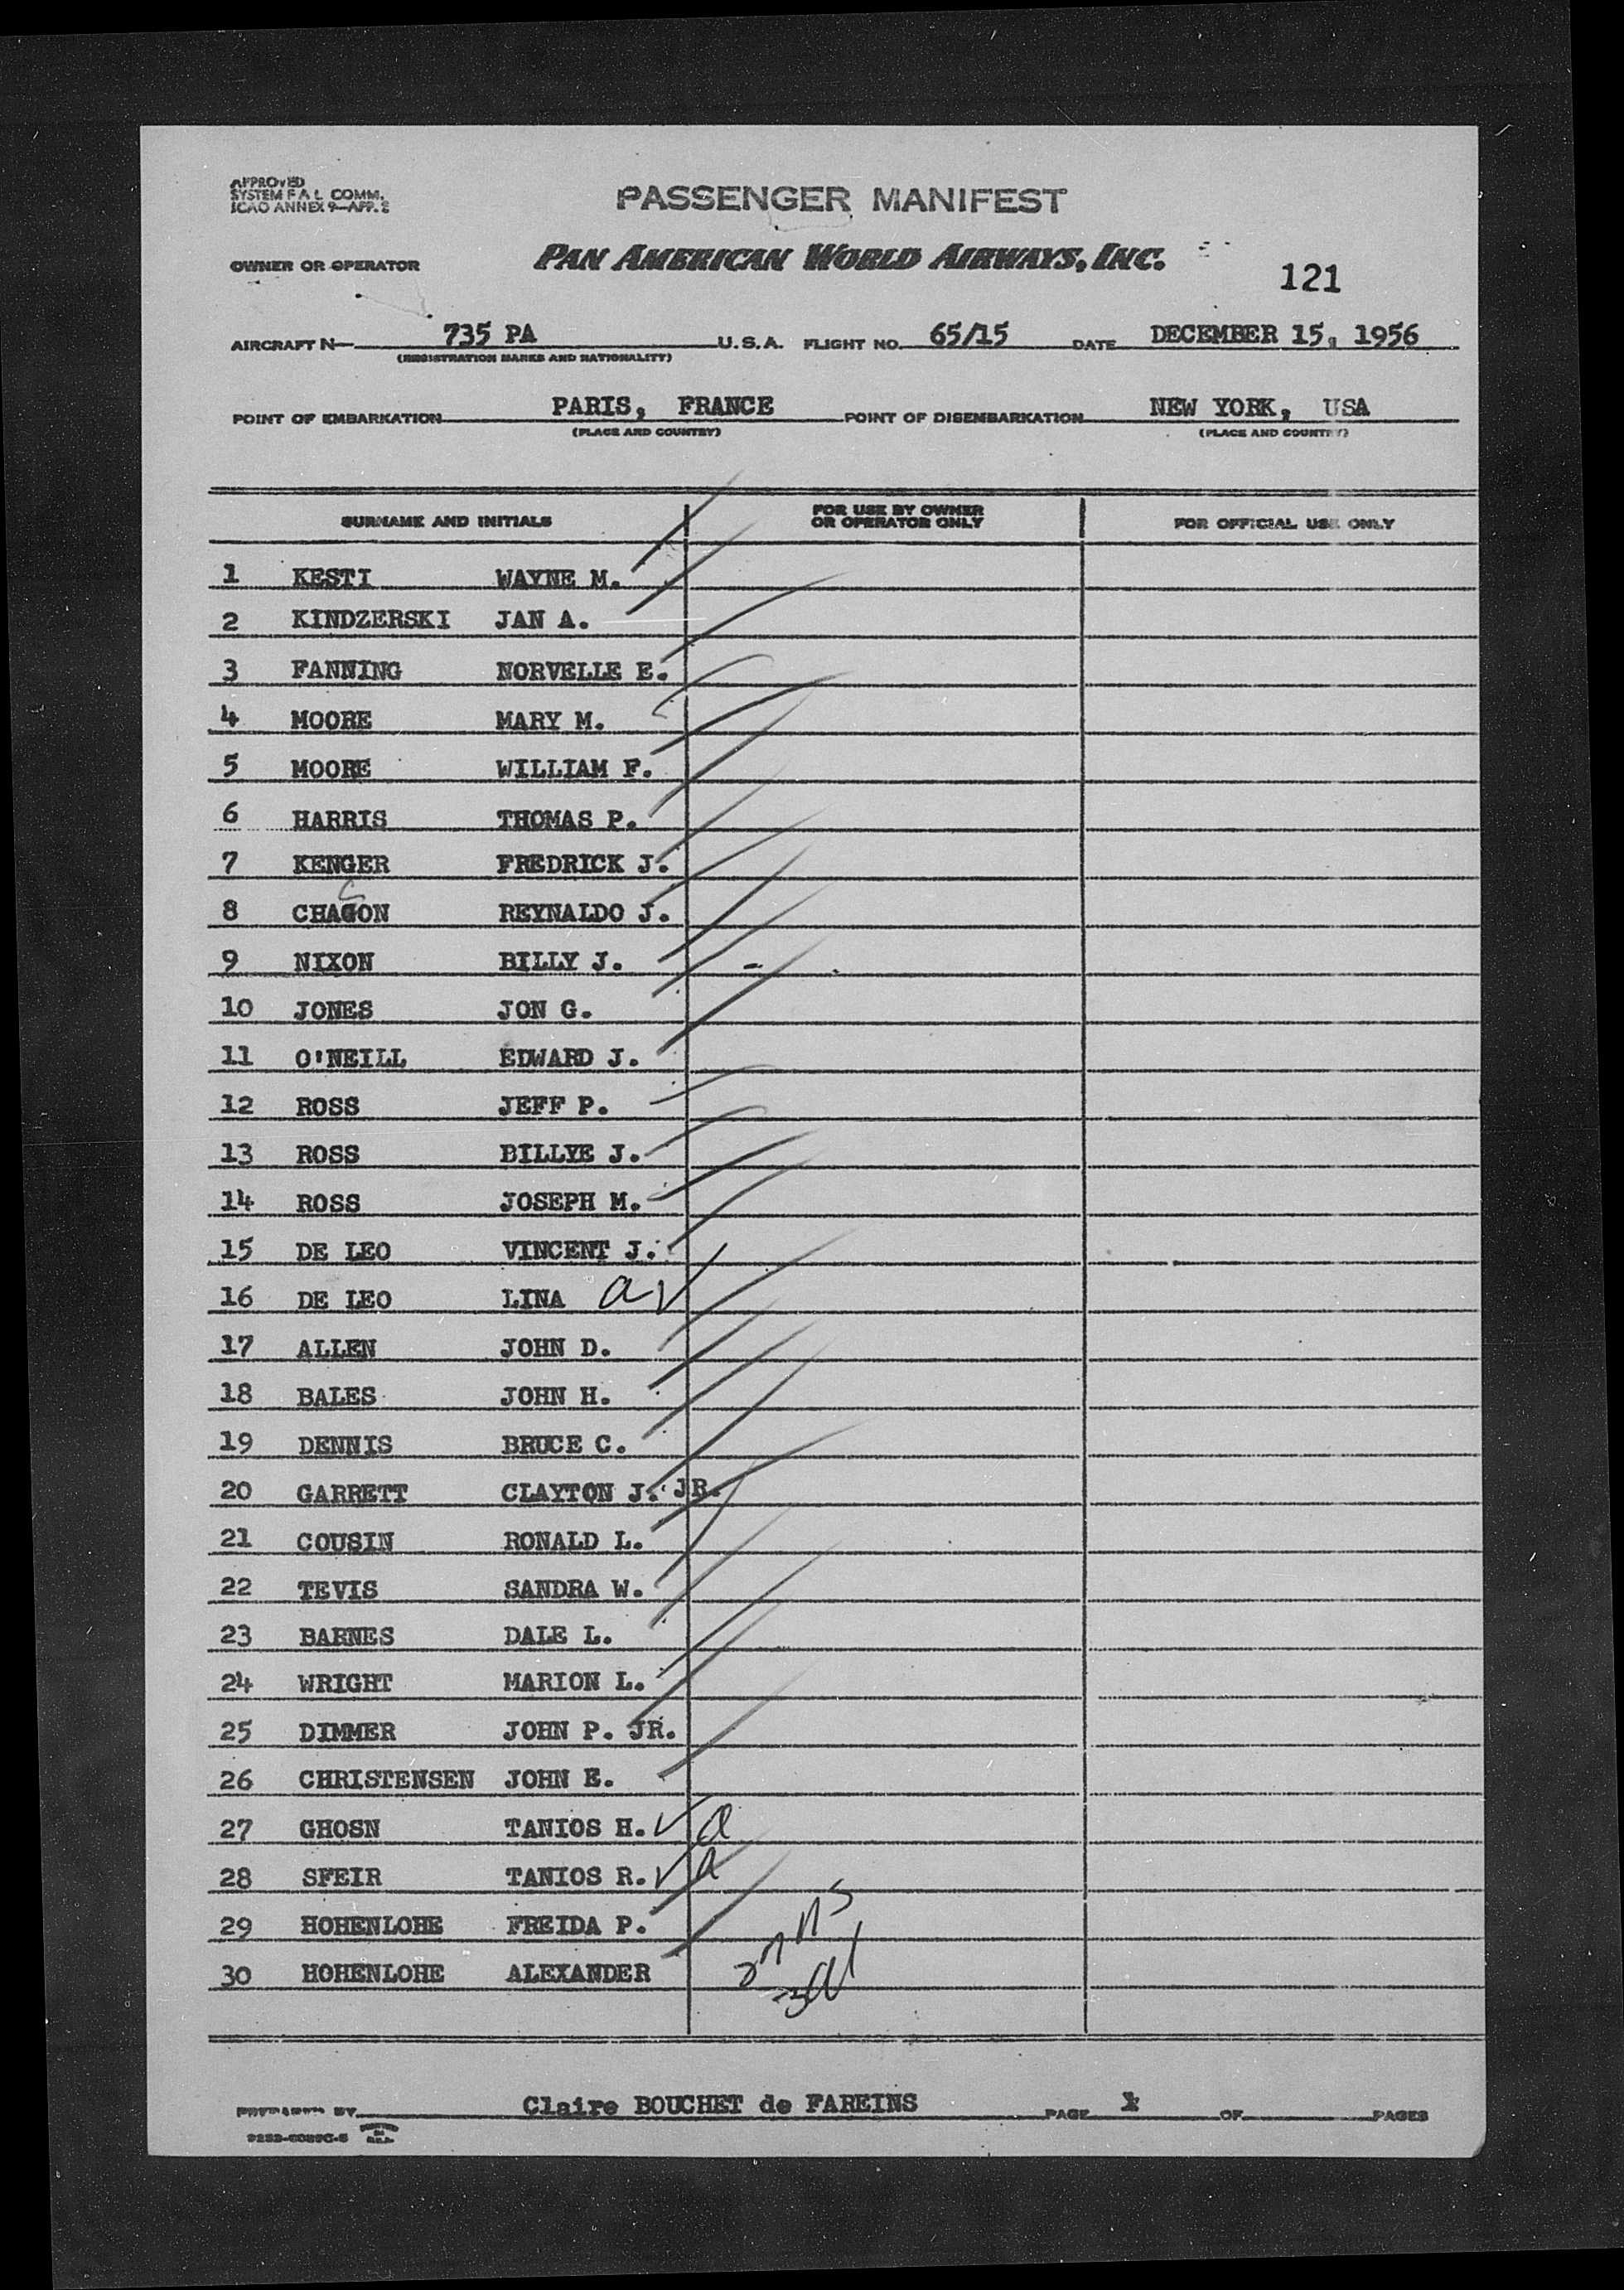 APPROVED
SYSTEM F A L COMM.
ICAO ANNEX 9—APP. 2
PASSENGER MANIFEST
OWNER OR OPERATOR PAN AMERICAN WORLD AIRWAYS, INC.
121
AIRCRAFT N— 735 PA U.S.A. FLIGHT NO. 65/15 DATE DECEMBER 15, 1956
(REGISTRATION MARKS AND NATIONALITY)
POINT OF EMBARKATION PARIS, FRANCE POINT OF DISEMBARKATION NEW YORK, USA
(PLACE AND COUNTRY) (PLACE AND COUNTRY)
SURNAME AND INITIALS FOR USE BY OWNER OR OPERATOR ONLY FOR OFFICIAL USE ONLY
1 KESTI WAYNE M.
2 KINDZERSKI JAN A.
3 FANNING NORVELLE E.
4 MOORE MARY M.
5 MOORE WILLIAM F.
6 HARRIS THOMAS P.
7 KENGER FREDRICK J.
8 CHACON REYNALDO J.
9 NIXON BILLY J.
10 JONES JON G.
11 O'NEILL EDWARD J.
12 ROSS JEFF P.
13 ROSS BILLYE J.
14 ROSS JOSEPH M.
15 DE LEO VINCENT J.
16 DE LEO LINA a
17 ALLEN JOHN D.
18 BALES JOHN H.
19 DENNIS BRUCE C.
20 GARRETT CLAYTON J. JR.
21 COUSIN RONALD L.
22 TEVIS SANDRA W.
23 BARNES DALE L.
24 WRIGHT MARION L.
25 DIMMER JOHN P. JR.
26 CHRISTENSEN JOHN E.
27 GHOSN TANIOS H. a
28 SFEIR TANIOS R. a
29 HOHENLOHE FREIDA P.
30 HOHENLOHE ALEXANDER
PREPARED BY Claire BOUCHET de FAREINS PAGE OF PAGES